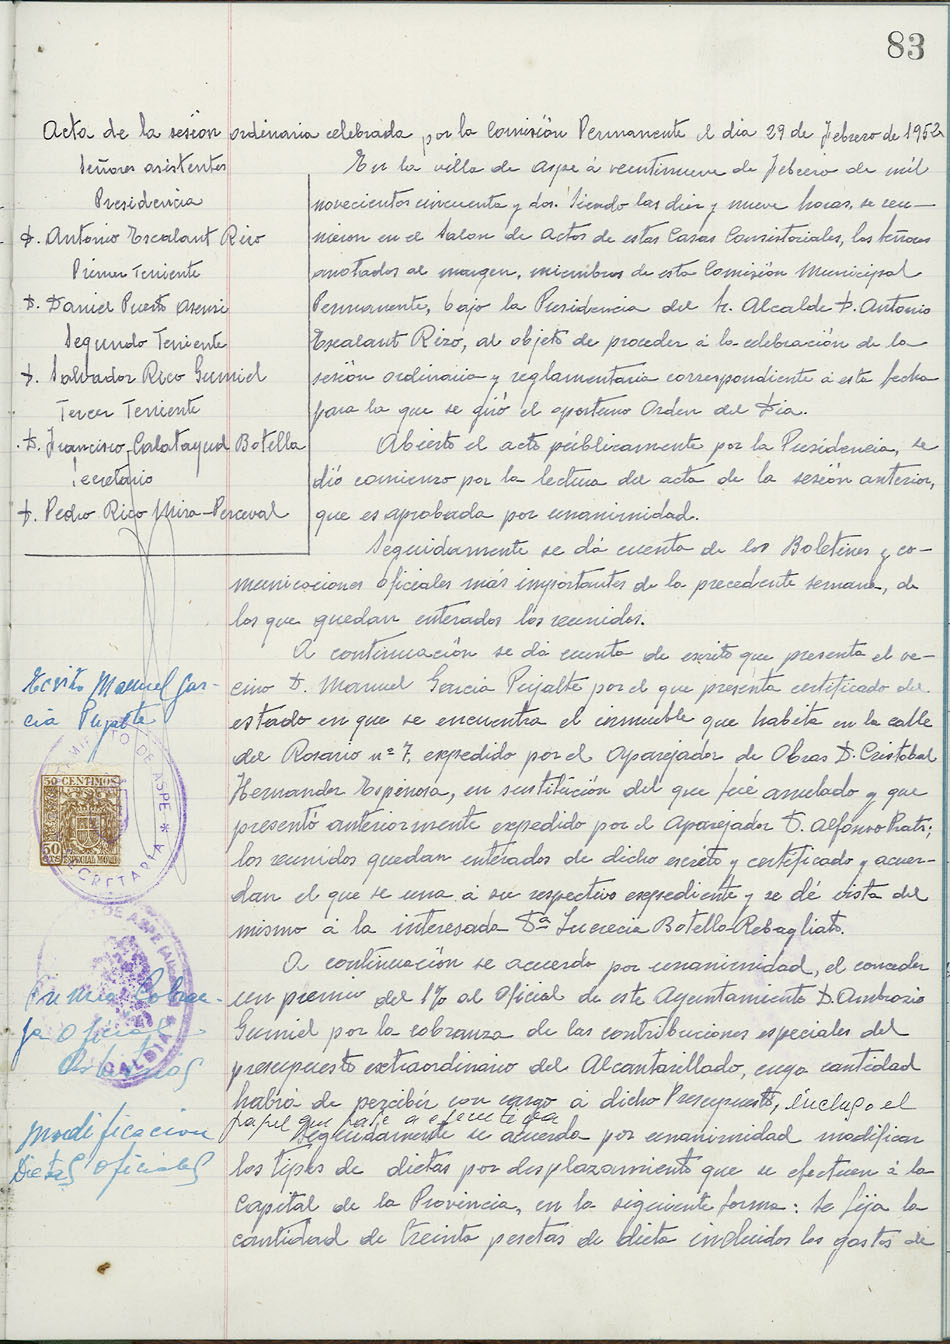 83
Acta de la sesión ordinaria celebrada por la Comisión Permanente el dia 29 de Febrero de 1952
Señores asistentes
Presidencia
D. Antonio Escalant Rizo
Primer Teniente
D. Daniel Puerto Asensi
Segundo Teniente
D. Salvador Rico Gumiel
Tercer Teniente
D. Francisco Calatayud Botella
Secretario
D. Pedro Rico Mira-Perceval
En la villa de Aspe á veintinueve de Febrero de mil
novecientos cincuenta y dos. Siendo las diez y nueve horas, se reu-
nieron en el Salon de Actos de estas Casas Consistoriales, los señores
anotados al margen, miembros de esta Comisión Municipal
Permanente, bajo la Presidencia del Sr. Alcalde D. Antonio
Escalant Rizo, al objeto de proceder á la celebración de la
sesión ordinaria y reglamentaria correspondiente á esta fecha
para la que se giró el oportuno Orden del Dia.
Abierto el acto públicamente por la Presidencia, se
dió comienzo por la lectura del acta de la sesión anterior,
que es aprobada por unanimidad.
Seguidamente se dá cuenta de los Boletines y co-
municaciones oficiales más importantes de la precedente semana, de
los que quedan enterados los reunidos.
Escrito Manuel Gar-
cia Pujalte
A continuación se dá cuenta de escrito que presenta el ve-
cino D. Manuel Garcia Pujalte por el que presenta certificado del
estado en que se encuentra el inmueble que habita en la calle
del Rosario nº 7, expedido por el Aparejador de Obras D. Cristobal
Hernandez Espinosa, en sustitución del que fué anulado y que
presentó anteriormente expedido por el Aparejador D. Alfonso Prats;
los reunidos quedan enterados de dicho escrito y certificado y acuer-
dan el que se una á su respectivo expediente y se dé vista del
mismo á la interesada Dª Lucrecia Botella Rebagliato.
50 CENTIMOS
50
CTS ESPECIAL MOVIL
DE ASPE * SECRETARIA *
DE ASPE
ALCALDIA *
Premio Cobran-
za Oficial
Arbitrios
A continuación se acuerda por unanimidad, el conceder
un premio del 1% al Oficial de este Ayuntamiento D. Ambrosio
Gumiel por la cobranza de las contribuciones especiales del
presupuesto extraordinario del Alcantarillado, cuya cantidad
habrá de percibir con cargo á dicho Presupuesto, incluso el
papel que pase a ejecutiva
Modificacion
Dietas Oficiales
Seguidamente se acuerda por unanimidad modificar
los tipos de dietas por desplazamiento que se efectuen á la
Capital de la Provincia, en la siguiente forma: Se fija la
cantidad de treinta pesetas de dieta incluidos los gastos de